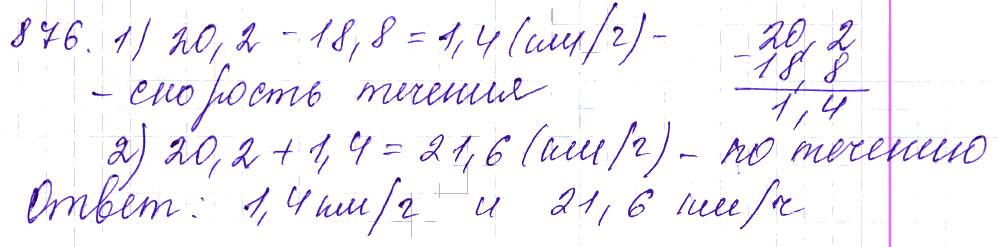 876. 1) 20,2 - 18,8 = 1,4 (км/ч) -
- скорость течения
20,2
- 18,8
1,4
2) 20,2 + 1,4 = 21,6 (км/ч) - по течению
Ответ: 1,4 км/ч и 21,6 км/ч